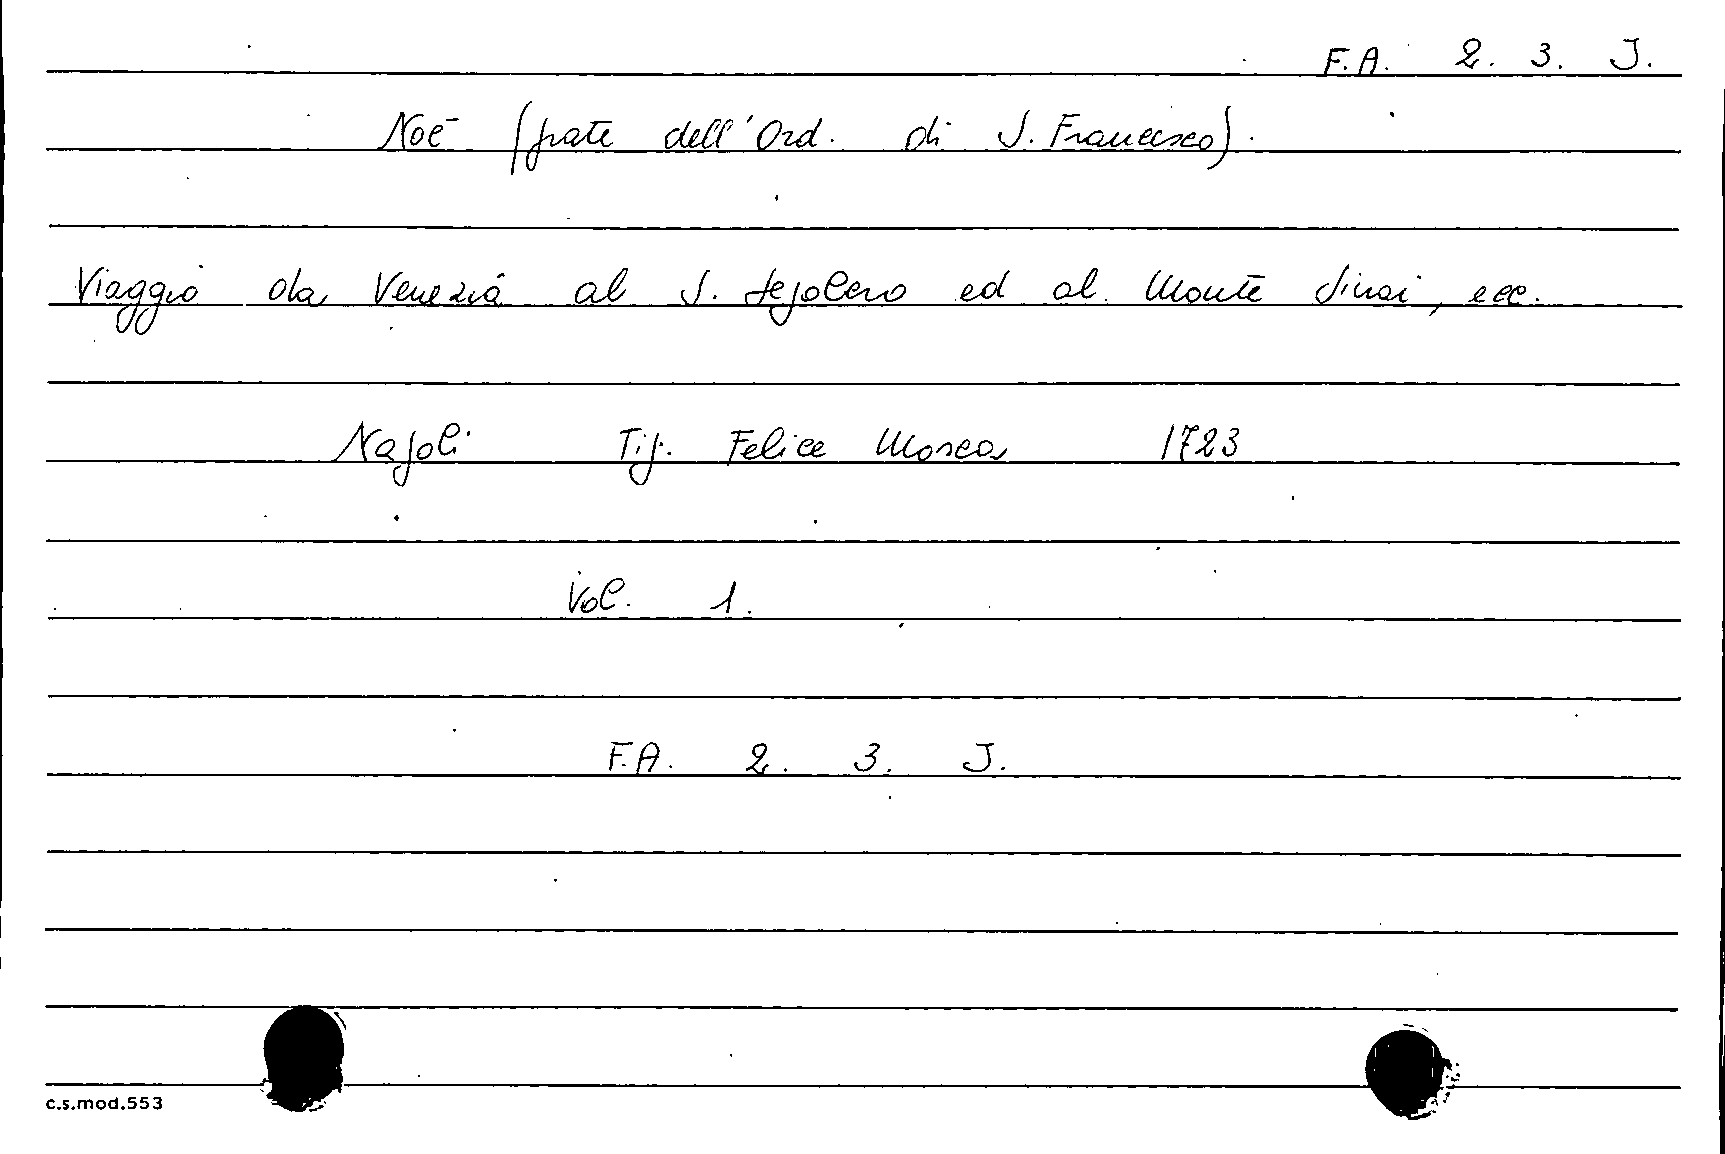 F.A. 2. 3. J.
Noè (frate dell'Ord. di S. Francesco).
Viaggio da Venezia al S. Sepolcro ed al Monte Sinai, ecc.
Napoli Tip. Felice Mosca 1723
Vol. 1.
F.A. 2. 3. J.
c.s.mod.553